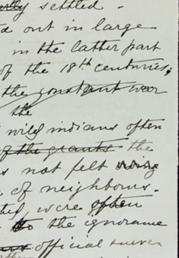 settled.
out in large
in the latter part
of the 18th centuries,
the constant war
the
wild indians often
of the grants the
s not felt
of neighbours.
were often
to the ignorance
official